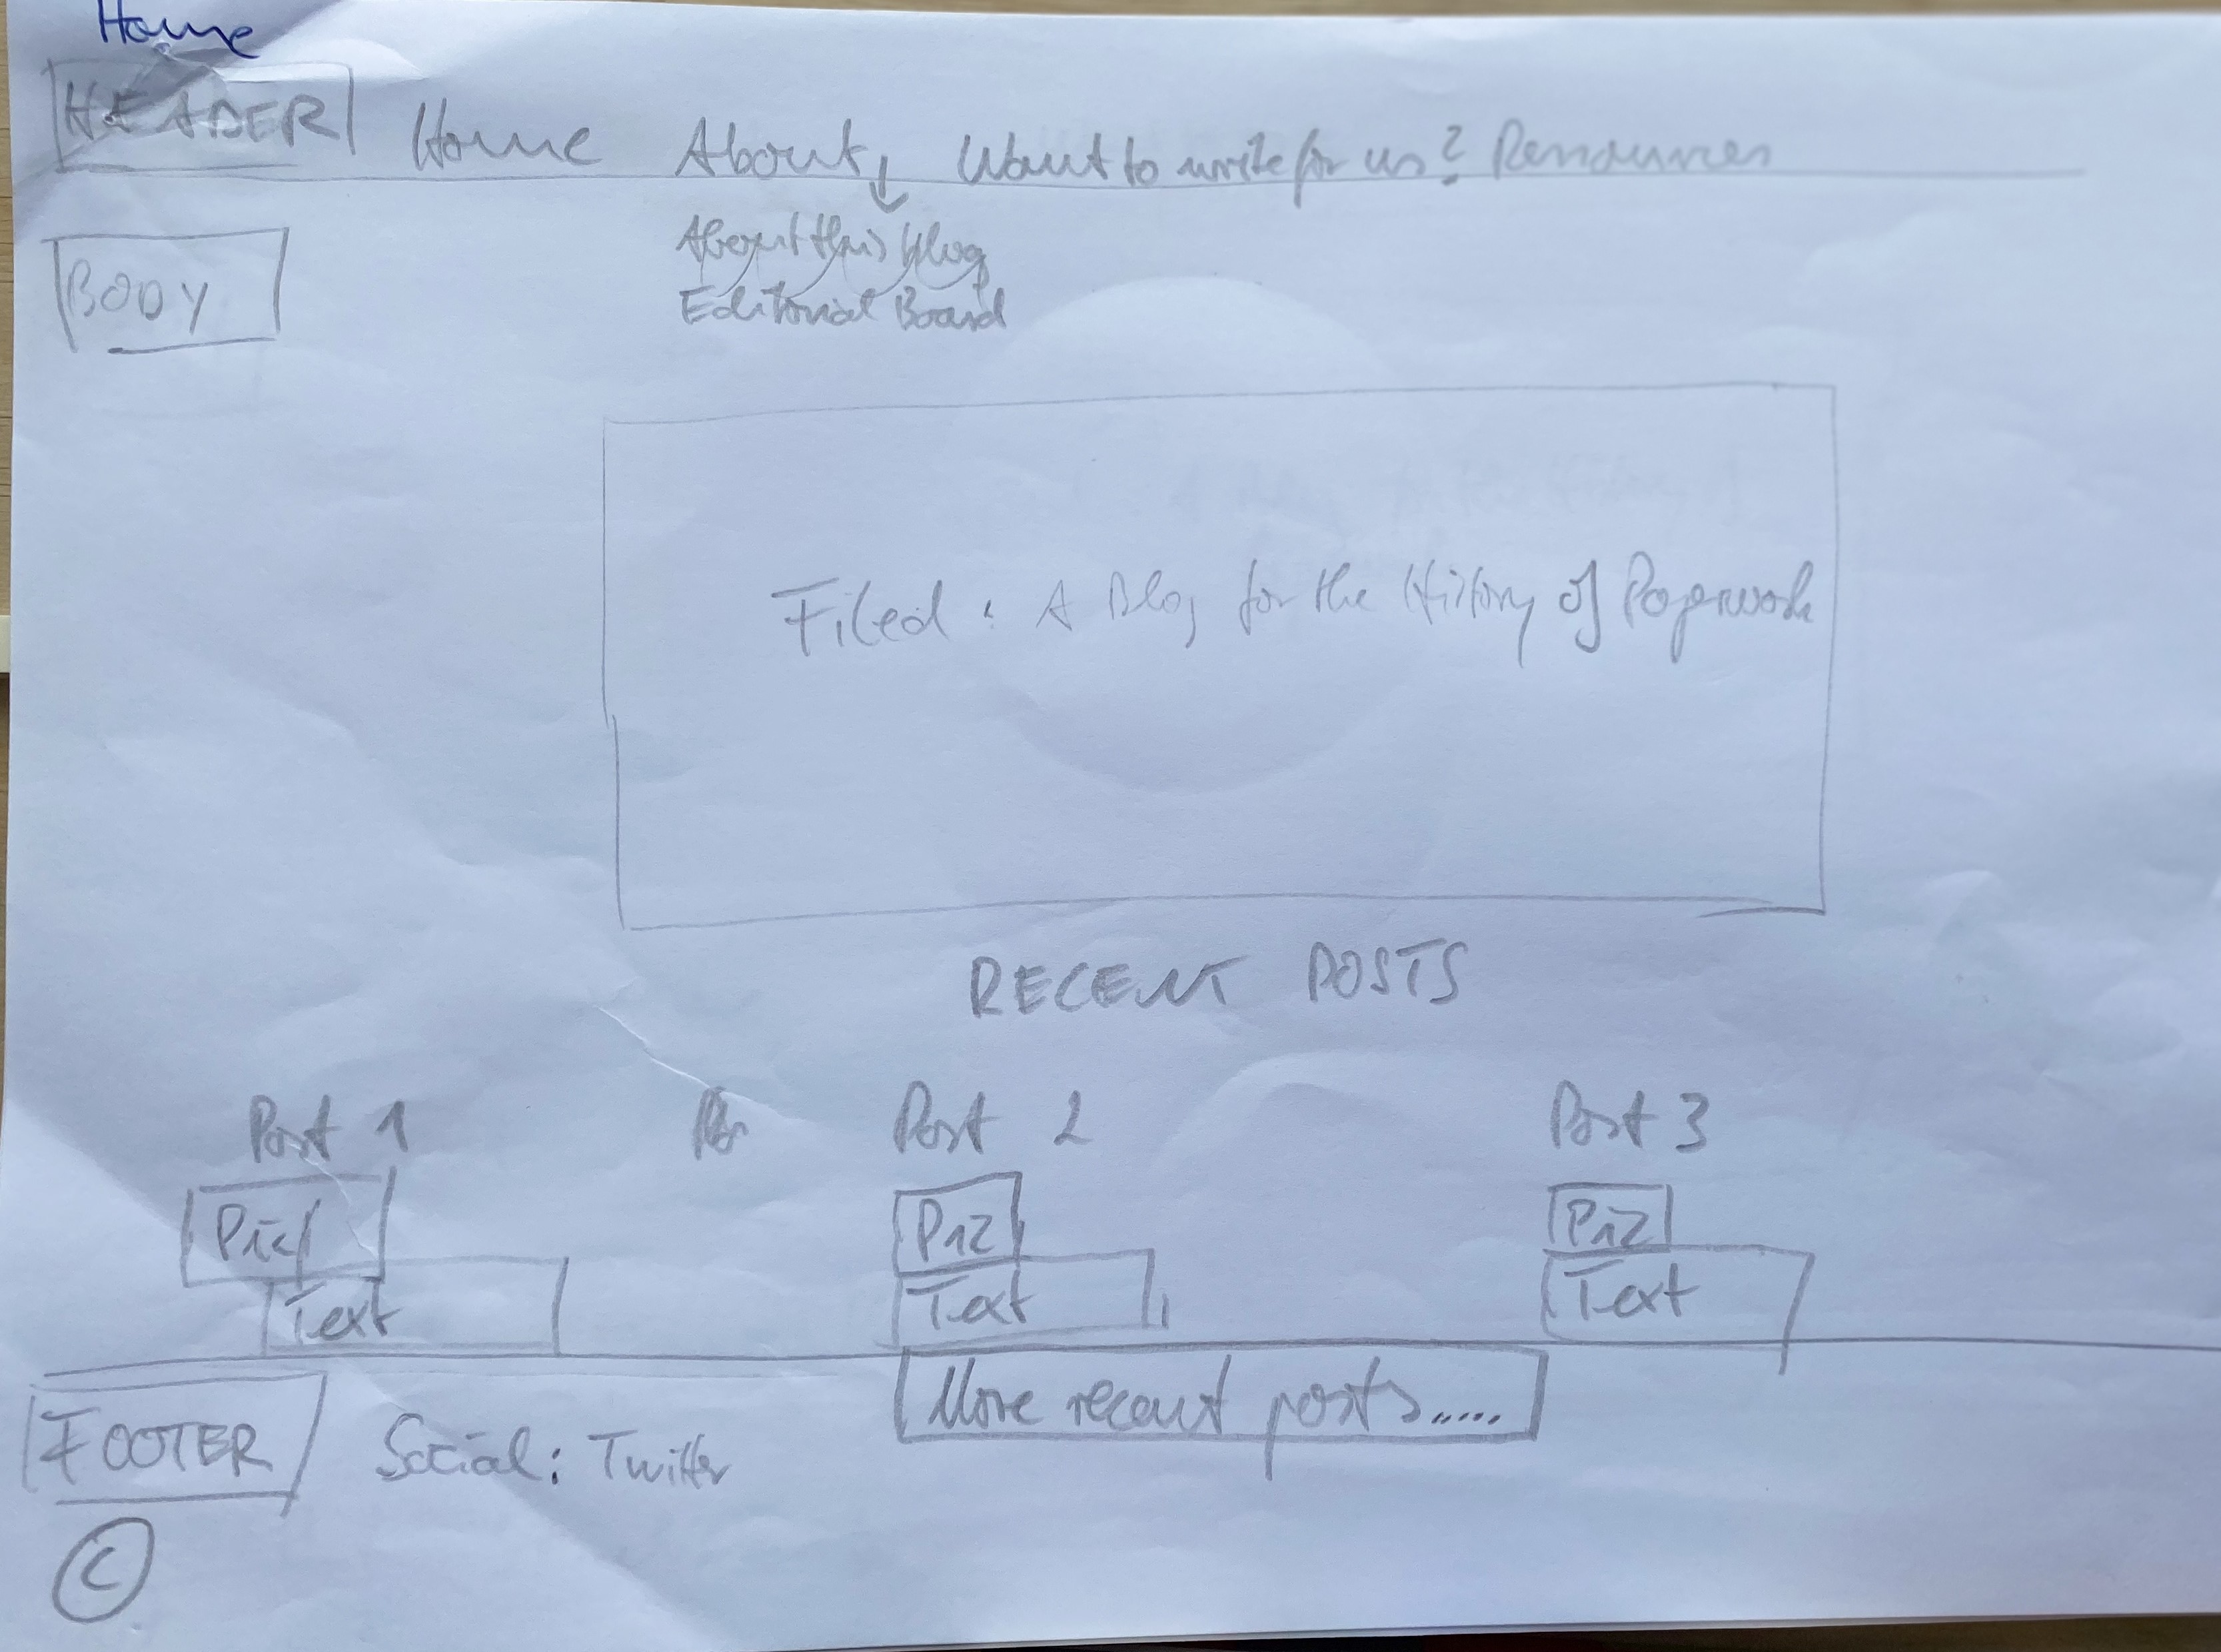 Home
HEADER Home About Want to write for us? Ressources
About this blog
Editorial Board
BODY
Filed: A Blog for the History of Paperwork
RECENT POSTS
Post 1 Post 2 Post 3
Pic Pic Pic
Text Text Text
More recent posts.....
FOOTER Social: Twitter
©